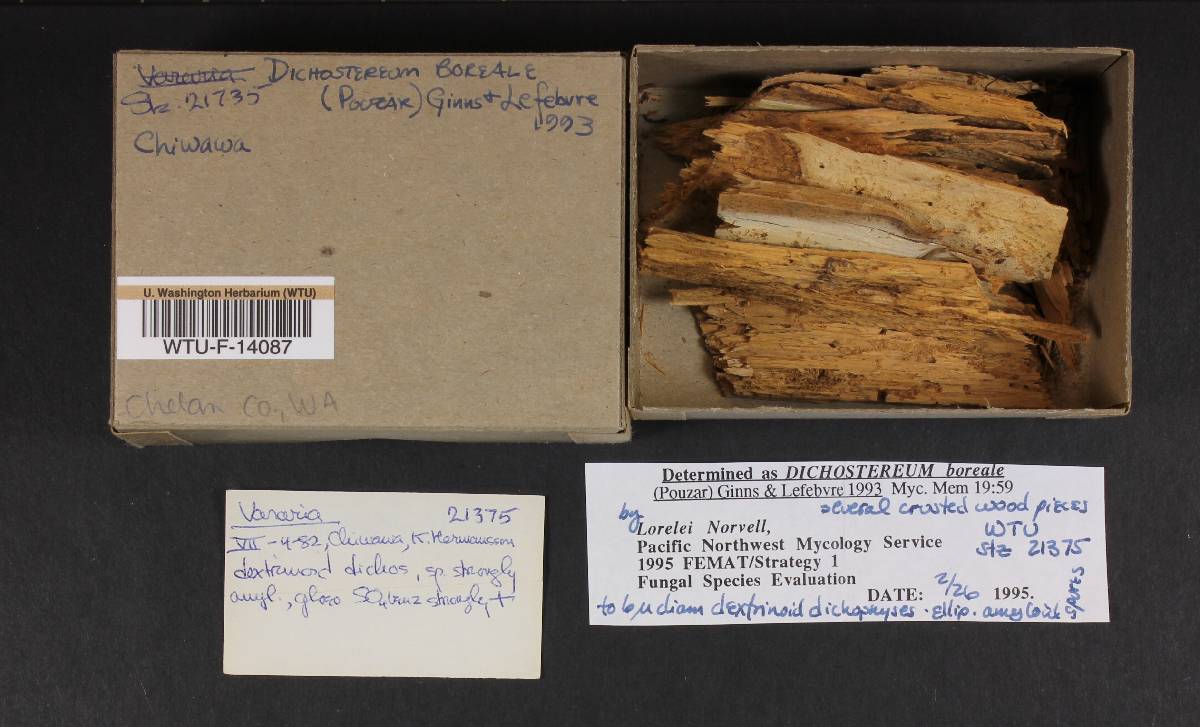 Vararia DICHOSTEREUM BOREALE
Stz. 21735 (POUZAR) Ginns & Lefebvre
1993
Chiwawa
U. Washington Herbarium (WTU)
WTU-F-14087
Chelan Co., WA
Vararia 21375
VII-4-82, Chiwawa, K. Hermansson
dextrinoid dichos, sp. strongly
amyl., gloeo strongly +
Determined as DICHOSTEREUM boreale
(Pouzar) Ginns & Lefebvre 1993 Myc. Mem 19:59
several crusted wood pieces
by Lorelei Norvell, WTU
Pacific Northwest Mycology Service Stz 21375
1995 FEMAT/Strategy 1
Fungal Species Evaluation
DATE: 2/26 1995.
to 6µ diam dextrinoid dichophyses. ellip. amyloid spores